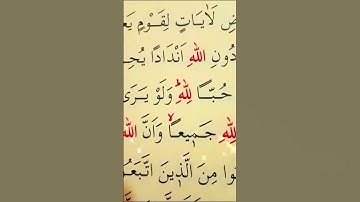 ضِ لَاٰيَاتٍ لِقَوْمٍ يَعْ
دُونِ اللّٰهِ اَنْدَادًا يُحِ
حُبًّا لِلّٰهِؕ وَلَوْ يَرَى
لِلّٰهِ جَم۪يعًاۙ وَاَنَّ اللّٰهَ
وا مِنَ الَّذ۪ينَ اتَّبَعُ